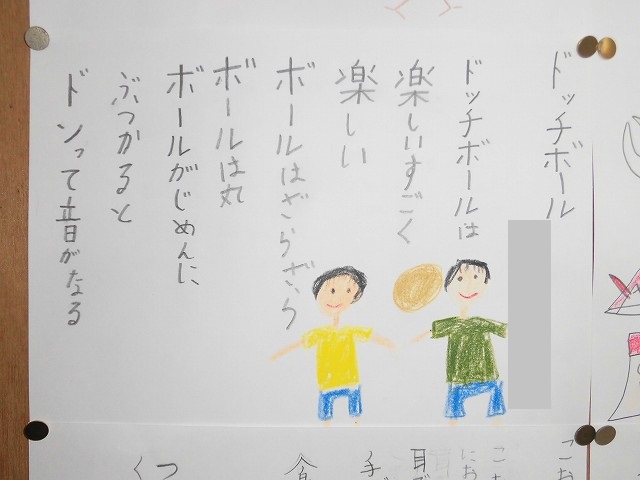 ドッチボール
ドッチボールは
楽しいすごく
楽しい
ボールはざらざら
ボールは丸
ボールがじめんに
ぶつかると
ドンって音がなる